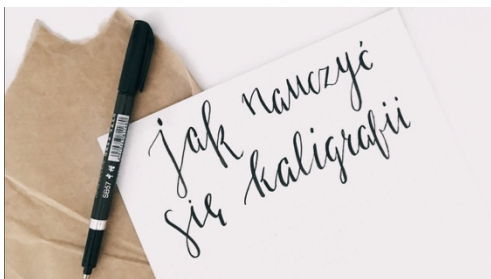 jak nauczyć
się kaligrafii
SB57